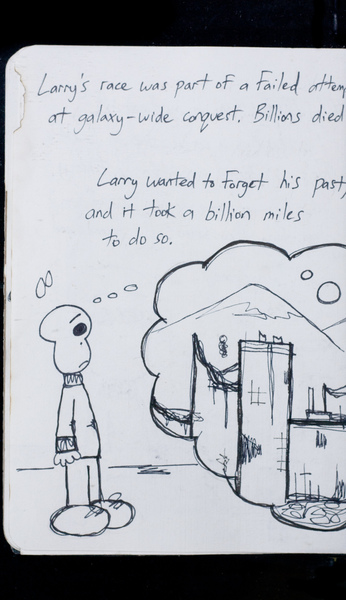 Larry's race was part of a failed
at galaxy-wide conquest. Billions died
Larry wanted to forget his past,
and it took a billion miles
to do so.